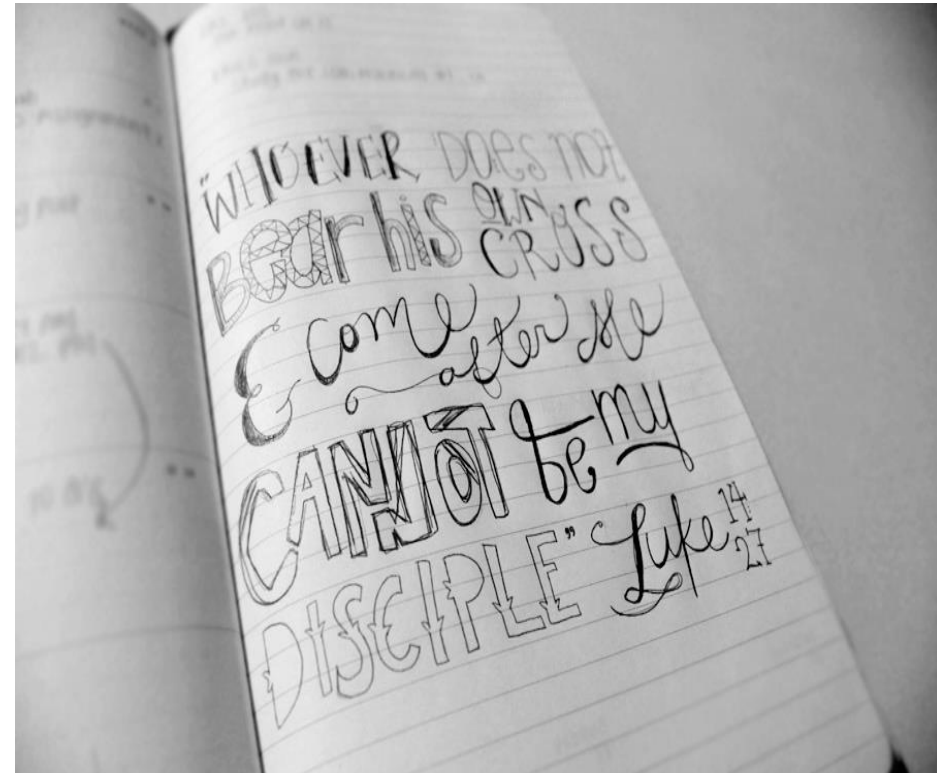 "WHOEVER Does not
Bear his OWN CROSS
& come after Me
CANNOT be my
DISCIPLE" Luke 14 27